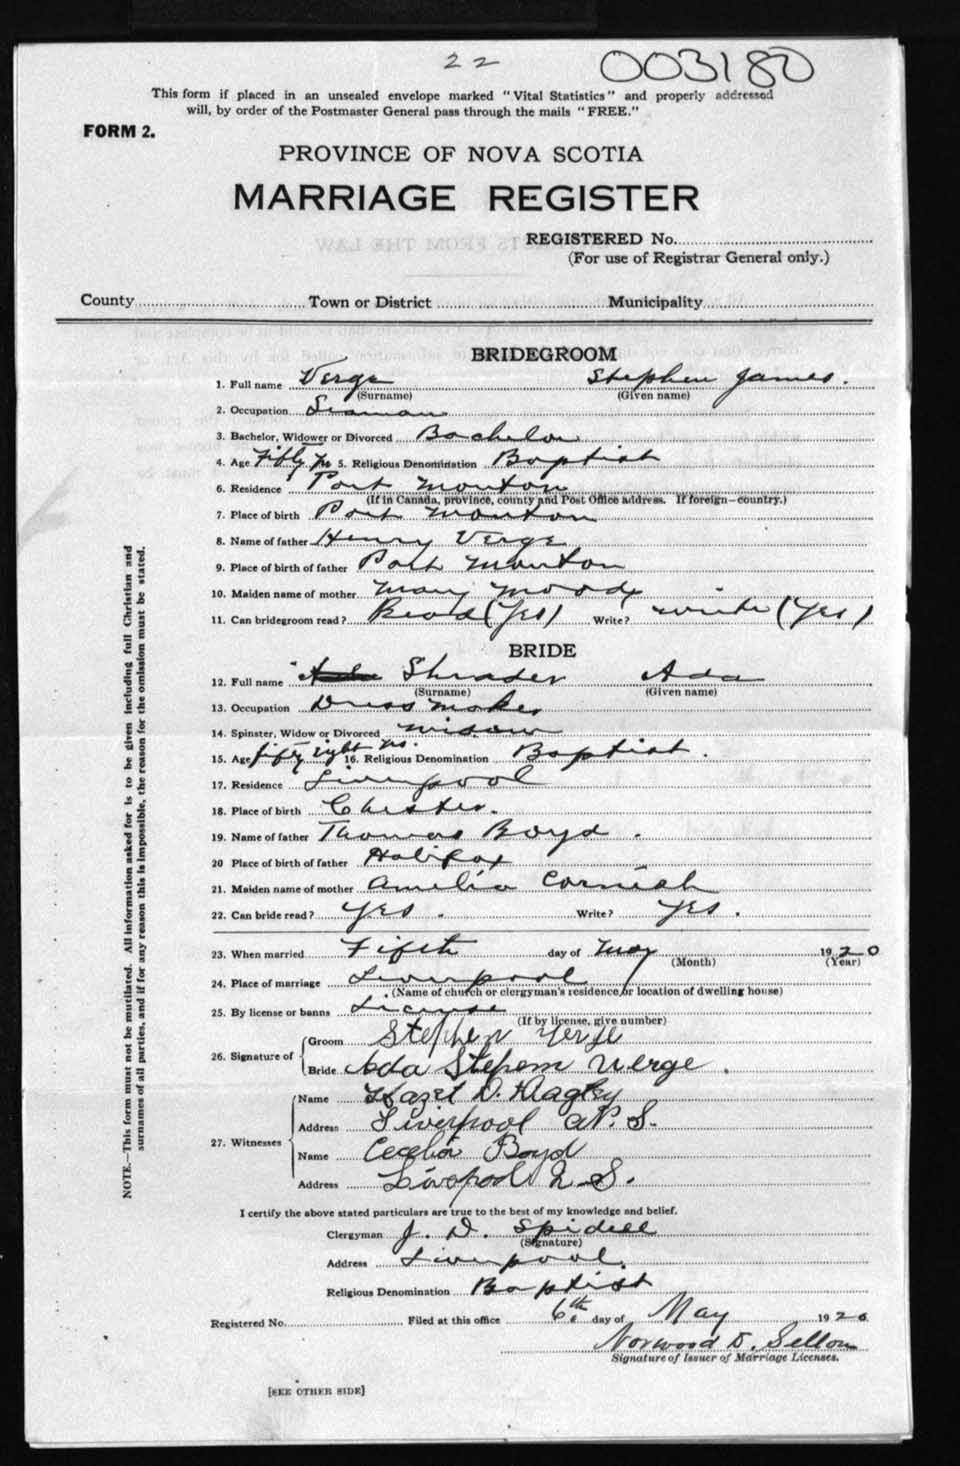 22 003180
This form if placed in an unsealed envelope marked "Vital Statistics" and properly addressed
will, by order of the Postmaster General pass through the mails "FREE."
FORM 2.
PROVINCE OF NOVA SCOTIA
MARRIAGE REGISTER
REGISTERED No.
(For use of Registrar General only.)
County Town or District Municipality
BRIDEGROOM
1. Full name Verge Stephen James.
(Surname) (Given name)
2. Occupation Seaman
3. Bachelor, Widower or Divorced Bachelor
4. Age Fifty 5. Religious Denomination Baptist
6. Residence Port Mouton
(If in Canada, province, county and Post Office address. If foreign—country.)
7. Place of birth Port Mouton
8. Name of father Henry Verge
9. Place of birth of father Port Mouton
10. Maiden name of mother Mary Moody
11. Can bridegroom read? Read (Yes) Write? write (Yes)
BRIDE
12. Full name Shrader Ada
(Surname) (Given name)
13. Occupation Dress maker
14. Spinster, Widow or Divorced Widow
15. Age fifty eight yrs. 16. Religious Denomination Baptist.
17. Residence Liverpool
18. Place of birth Chester.
19. Name of father Thomas Boyd.
20 Place of birth of father Halifax
21. Maiden name of mother Amelia Cornish
22. Can bride read? Yes. Write? Yes.
23. When married Fifth day of May 1920
(Month) (Year)
24. Place of marriage Liverpool
(Name of church or clergyman's residence, or location of dwelling house)
25. By license or banns License
(If by license, give number)
26. Signature of Groom Stephen Verge
Bride Ada Verge.
27. Witnesses Name Hazel D.
Address Liverpool N. S.
Name Cecelia Boyd
Address Liverpool N. S.
I certify the above stated particulars are true to the best of my knowledge and belief.
Clergyman J. D. Spidell
(Signature)
Address Liverpool.
Religious Denomination Baptist
Registered No. Filed at this office 6th day of May 1920
Norwood D.
Signature of Issuer of Marriage Licenses.
[SEE OTHER SIDE]
NOTE.—This form must not be mutilated. All information asked for is to be given including full Christian and
surnames of all parties, and if for any reason this is impossible, the reason for the omission must be stated.